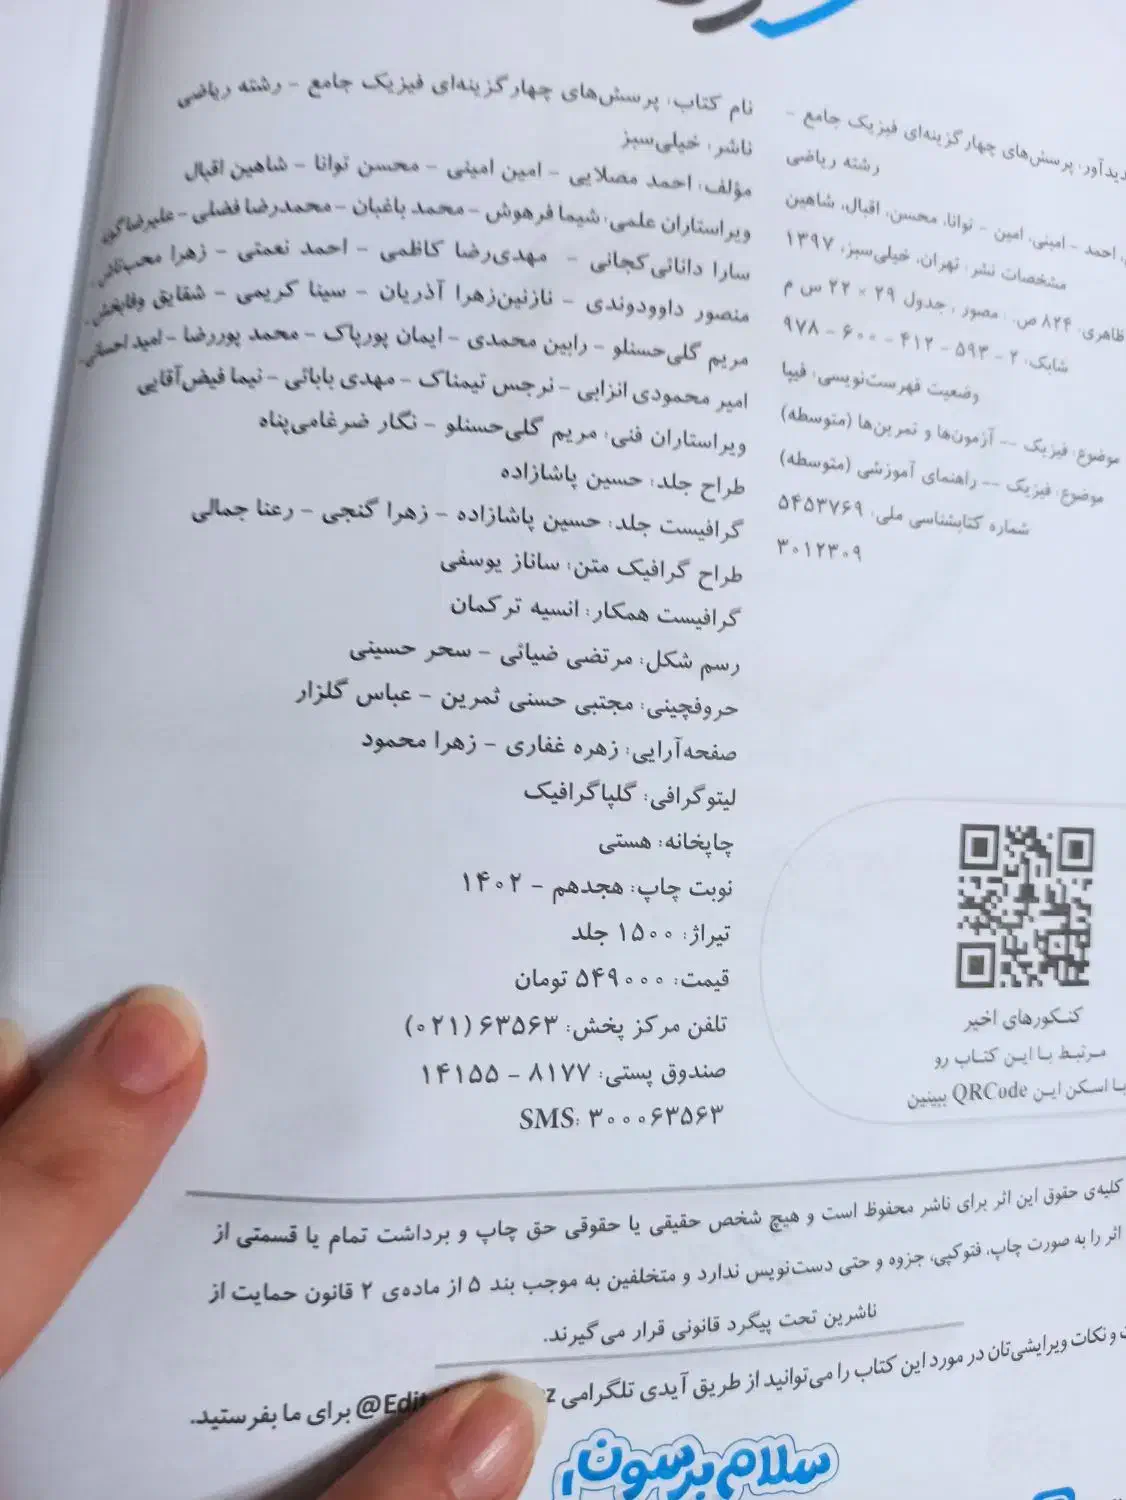 دیدآور: پرسش‌های چهارگزینه‌ای فیزیک جامع -
رشته ریاضی
احمد - امینی، امین - توانا، محسن، اقبال، شاهین
مشخصات نشر: تهران، خیلی‌سبز، ۱۳۹۷
ظاهری: ۸۲۴ ص.: مصور، جدول ۲۹ × ۲۲ س م
شابک: ۲ - ۵۹۳ - ۴۱۲ - ۶۰۰ - ۹۷۸
وضعیت فهرست‌نویسی: فیپا
موضوع: فیزیک -- آزمون‌ها و تمرین‌ها (متوسطه)
موضوع: فیزیک -- راهنمای آموزشی (متوسطه)
شماره کتابشناسی ملی: ۵۴۵۳۷۶۹
۳۰۱۲۳۰۹
کنکورهای اخیر
مرتبط با این کتاب رو
با اسکن این QRCode ببینین
نام کتاب: پرسش‌های چهارگزینه‌ای فیزیک جامع - رشته ریاضی
ناشر: خیلی‌سبز
مؤلف: احمد مصلایی - امین امینی - محسن توانا - شاهین اقبال
ویراستاران علمی: شیما فرهوش - محمد باغبان - محمدرضا فضلی - علیرضا
سارا دانائی‌کجانی - مهدی‌رضا کاظمی - احمد نعمتی - زهرا
منصور داوودوندی - نازنین‌زهرا آذریان - سینا کریمی - شقایق وفابخش -
مریم گلی‌حسنلو - رابین محمدی - ایمان پورپاک - محمد پوررضا - امید
امیر محمودی انزابی - نرجس تیمناک - مهدی بابائی - نیما فیض‌آقایی
ویراستاران فنی: مریم گلی‌حسنلو - نگار ضرغامی‌پناه
طراح جلد: حسین پاشازاده
گرافیست جلد: حسین پاشازاده - زهرا گنجی - رعنا جمالی
طراح گرافیک متن: ساناز یوسفی
گرافیست همکار: انسیه ترکمان
رسم شکل: مرتضی ضیائی - سحر حسینی
حروفچینی: مجتبی حسنی ثمرین - عباس گلزار
صفحه‌آرایی: زهره غفاری - زهرا محمود
لیتوگرافی: گلپاگرافیک
چاپخانه: هستی
نوبت چاپ: هجدهم - ۱۴۰۲
تیراژ: ۱۵۰۰ جلد
قیمت: ۵۴۹۰۰۰ تومان
تلفن مرکز پخش: ۶۳۵۶۳ (۰۲۱)
صندوق پستی: ۸۱۷۷ - ۱۴۱۵۵
SMS: ۳۰۰۰۶۳۵۶۳
کلیه‌ی حقوق این اثر برای ناشر محفوظ است و هیچ شخص حقیقی یا حقوقی حق چاپ و برداشت تمام یا قسمتی از
اثر را به صورت چاپ، فتوکپی، جزوه و حتی دست‌نویس ندارد و متخلفین به موجب بند ۵ از ماده‌ی ۲ قانون حمایت از
ناشرین تحت پیگرد قانونی قرار می‌گیرند.
و نکات ویرایشی‌تان در مورد این کتاب را می‌توانید از طریق آیدی تلگرامی @Edit z برای ما بفرستید.
سلام برسون